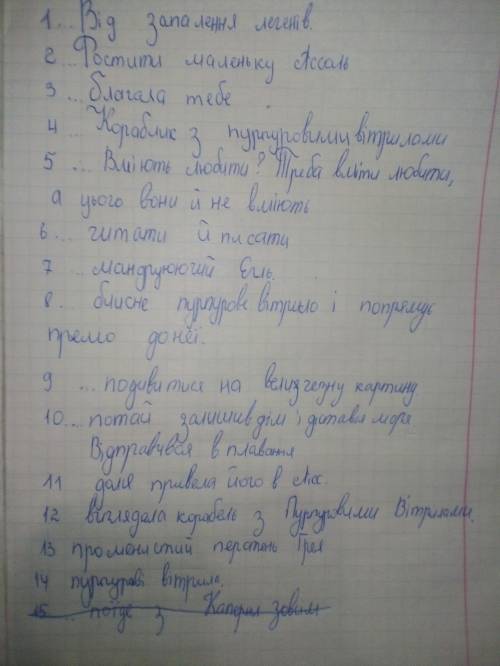 1 ... Від запалення легенів.
2 ... Ростити маленьку Ассоль
3 ... благала тебе
4 ... Кораблик з пурпуровими вітрилами
5 ... Вміють любити? Треба вміти любити,
а цього вони й не вміють
6 ... читати й писати
7 ... мандруюючий Егль.
8 ... блисне пурпурове вітрило і попрямує
прямо до неї.
9 ... подивитися на величезну картину
10 ... потай залишив дім і дістався моря
Відправився в плавання
11 доля привела його в Ліс.
12 виглядала корабель з Пурпуровими Вітрилами.
13 променистий перстень Грея
14 пурпурові вітрила.
15 ... поїде з